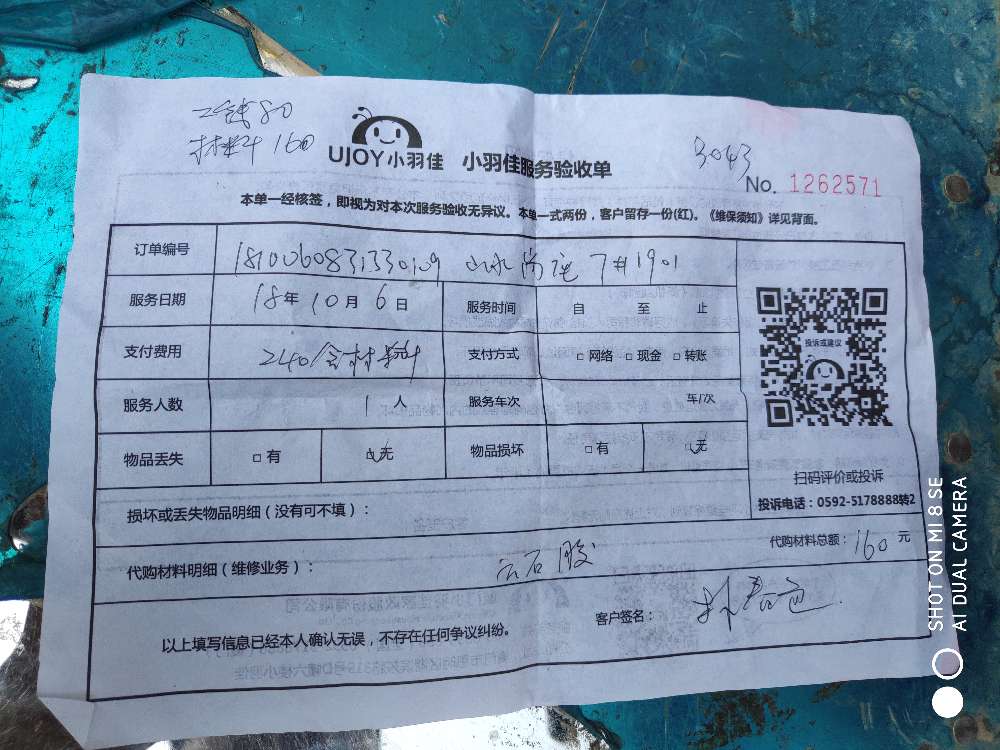 工钱80
材料160
UJOY小羽佳 小羽佳服务验收单
3043
No. 1262571
本单一经核签，即视为对本次服务验收无异议。本单一式两份，客户留存一份(红)。《维保须知》详见背面。
订单编号 山水尚座 7#1901
服务日期 18年10月6日 服务时间 自 至 止
支付费用 240/含材料 支付方式 □网络 □现金 □转账
服务人数 1人 服务车次 车/次
物品丢失 □有 □无 物品损坏 □有 □无
投诉或建议
扫码评价或投诉
投诉电话：0592-5178888转2
损坏或丢失物品明细（没有可不填）：
代购材料明细（维修业务）： 云石胶 代购材料总额：160元
客户签名：
以上填写信息已经本人确认无误，不存在任何争议纠纷。
SHOT ON MI 8 SE
AI DUAL CAMERA